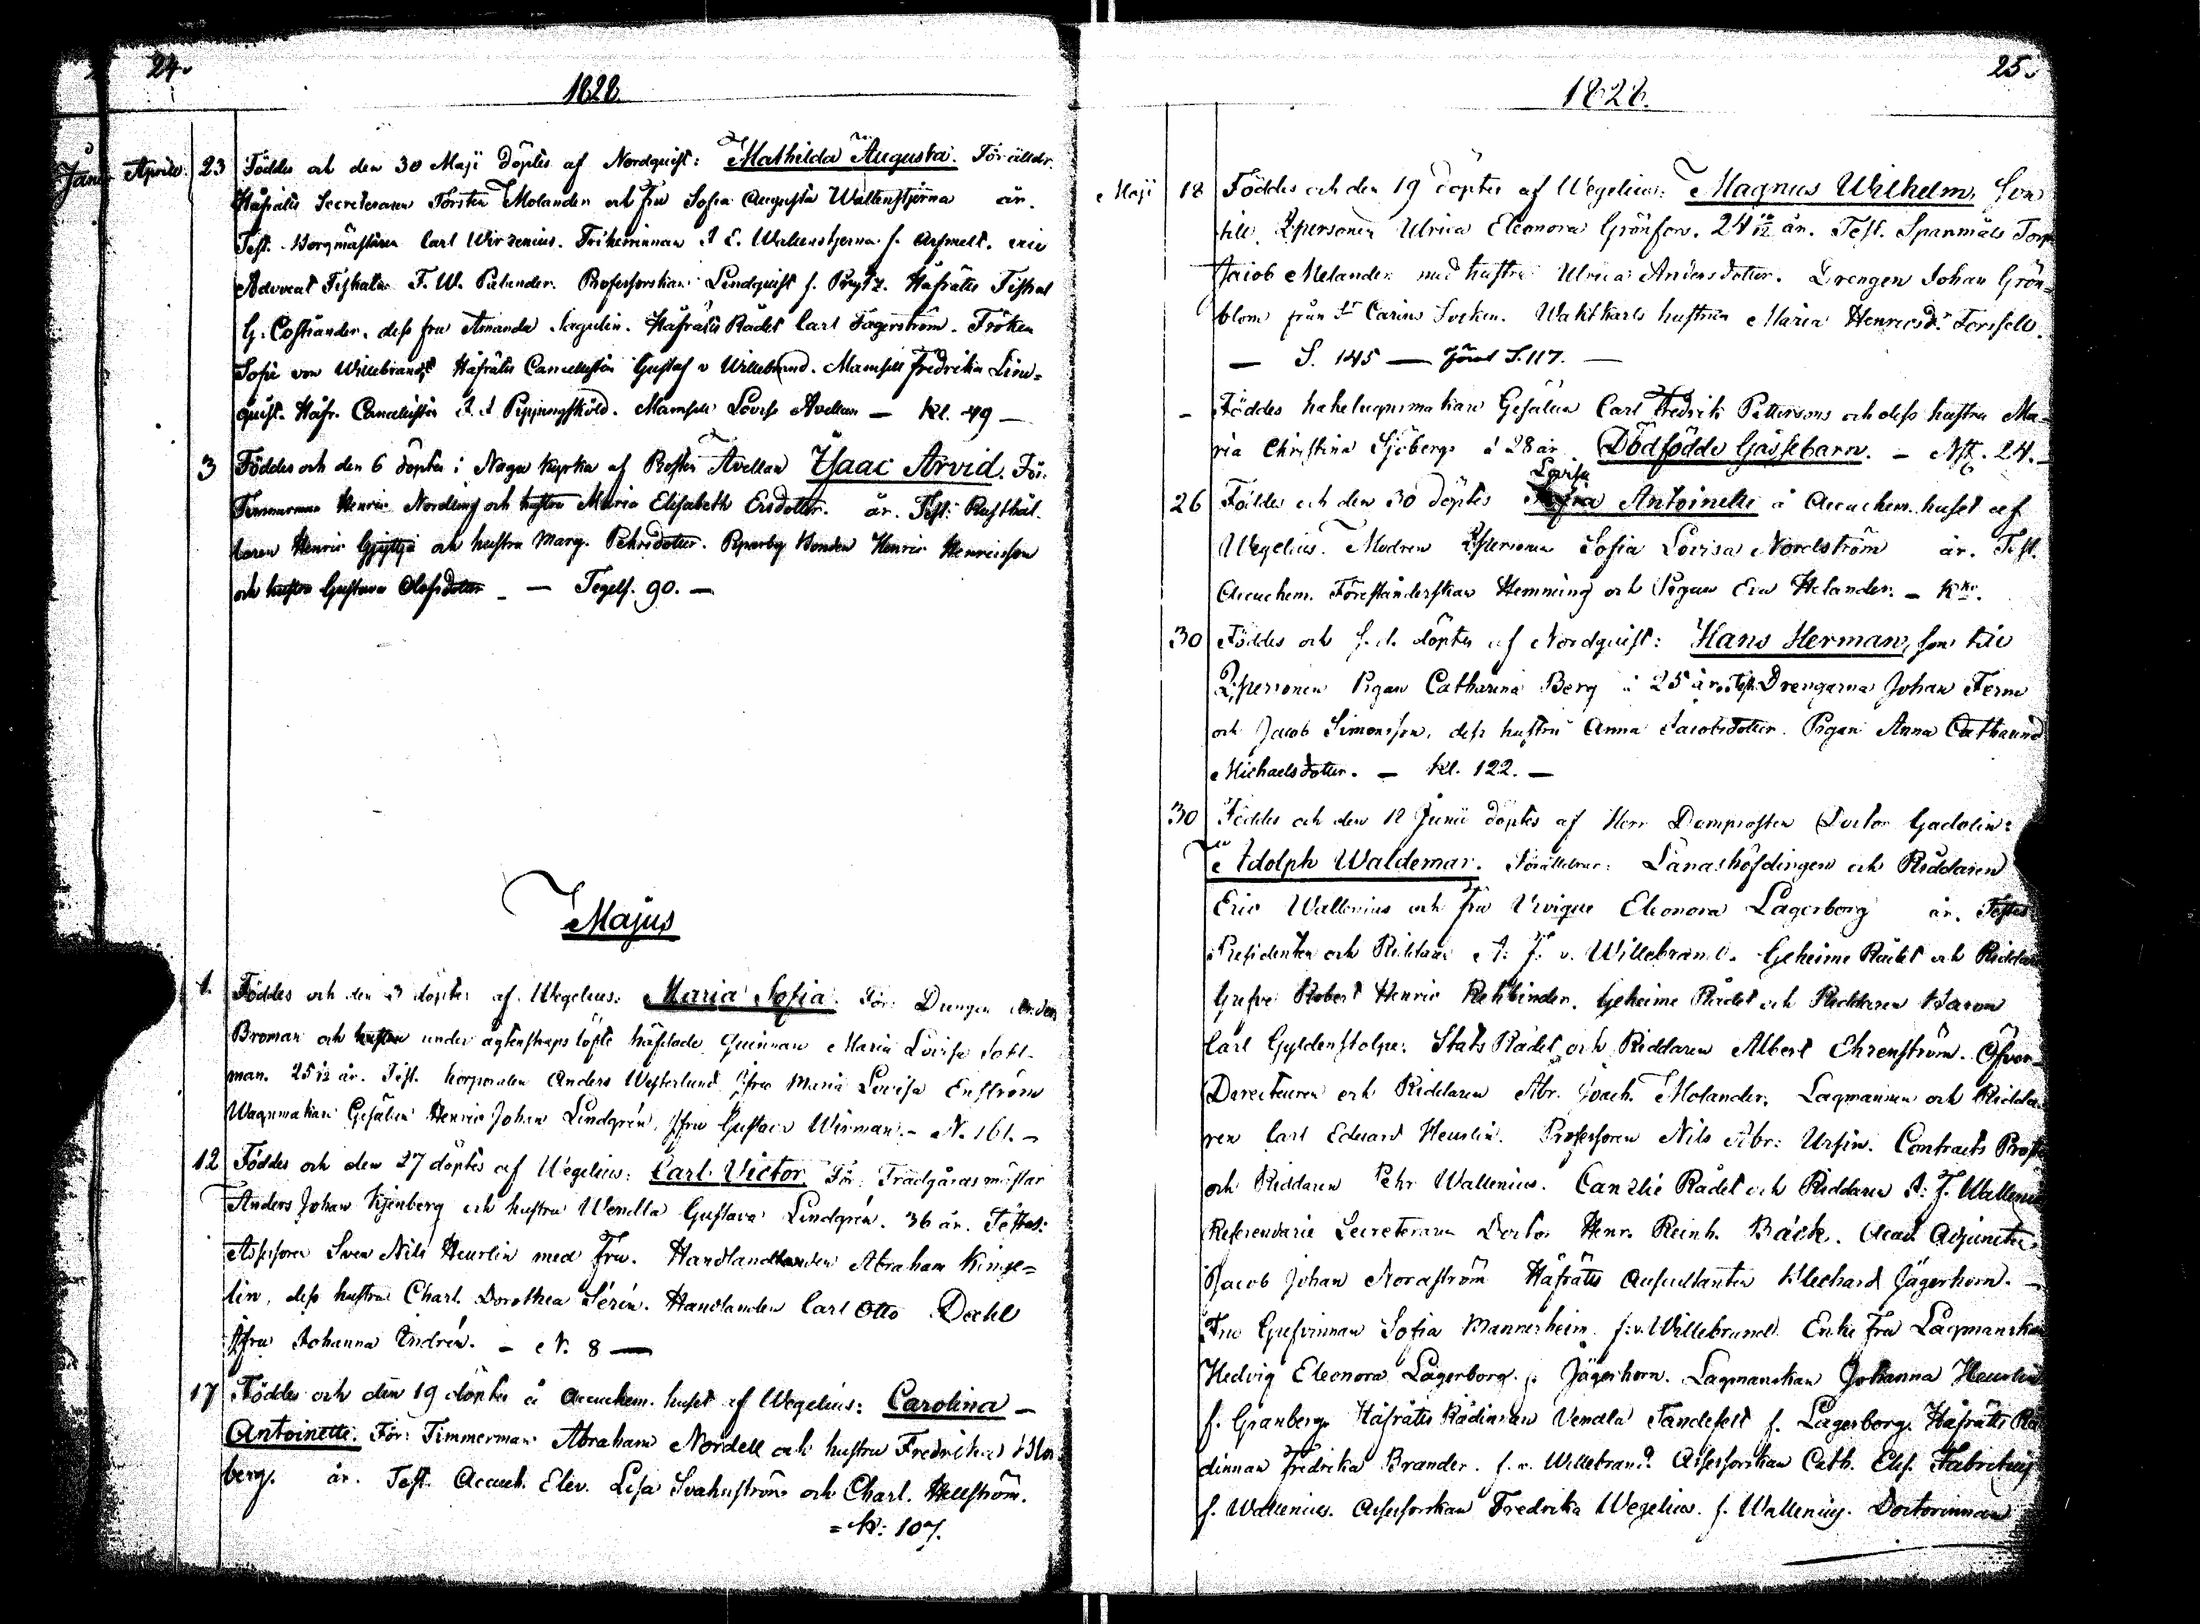 24.
1828.
Aprill. 23 Föddes och den 30 Maji döptes af Nordquist: Mathilda Augusta. Förälldr.
Håfrätts Secreteraren Torsten Molander och Fru Sofia Augusta Wallenstjerna år.
Test. Borgmästaren Carl Wirzenius. Friherrinnan J E. Wallenstjerna f. Arfmelt.
Advocat Fiskalen F. W. Palander. Professorskan Lindquist f. Prytz. Håfrätts Fiskal
G. Costiander, dess fru Amanda Sagulin. Håfrätts Rådet Carl Fagerström. Fröken
Sofie von Willebrandt Håfrätts Cancellisten Gustaf v Willebrand. Mamsell Fredrika Lind=
quist. Håfr. Cancellisten J. A Pippingsköld. Mamsell Lovisa Avellan — Kl. 49 —
3 Föddes och den 6 döptes i Nagu Kyrka af Prosten Avellan Isaac Arvid. För.
Timmerman Henric Nordling och hustru Maria Elisabeth Ersdotter. år. Test: Rusthål-
laren Henric och hustru Marg. Pehrsdotter. Bonden Henric Henricsson
och hustru Gustava Olofsdotter — Tegels. 90. —
Majus
1. Föddes och den 3 döptes af Wegelius: Maria Sofia. För: Drengen
Broman och hustru under ägtenskaps löfte häfdade Quinnan Maria Lovisa Sohl-
man. 25 år. Test. Korporalen Anders Westerlund, Jfru Maria Lovisa Enström
Wagnmakare Gesällen Henric Johan Lindgrén, Jfru Gustava Wirman. — N. 161. —
12 Föddes och den 27 döptes af Wegelius: Carl Victor. För: Trädgårdsmästar
Anders Johan Kjenberg och hustru Wendla Gustava Lindgrén. 36 år. Testes:
Assessoren Sven Nils Heurlin med Fru. Handlanden Abraham Kinge=
lin, dess hustru Charl. Dorothea Sérén. Handlanden Carl Otto Deckel
Jfru Johanna Indrén. — N. 8 —
17 Föddes och den 19 döptes å Accuchem. huset af Wegelius: Carolina —
Antoinette. För: Timmerman Abraham Nordell och hustru Fredrika Blom-
berg. år. Test. Accuch. Elev. Lisa Svahnström och Charl. Hellström.
= N: 107.
25.
1828.
Maji 18 Föddes och den 19 döptes af Wegelius: Magnus Wilhelm, Son
till Qpersonen Ulrica Eleonora Grönfors. 24 år. Test. Spanmåls Torp
Jacob Melander med hustru Ulrica Andersdotter. Drengen Johan Grön=
blom från St Carins Socken. Waktkarls hustrun Maria Henricsdr Forssell.
— S. 145 — S. 117. —
- Föddes hakelugnsmakare Gesällen Carl Fredrik Pettersons och dess hustru Ma-
ria Christina Sjöbergs à 28 år. Dödfödde Gossebarn. — 24. —
26 Föddes och den 30 döptes Lovisa Antoinette å Accuchem. huset af
Wegelius. Modren Qpersonen Sofia Lovisa Nordström år. Test.
Accuchem. Föreståndersskan Hemming och Pigan Eva Helander. —
30 Föddes och s. d. döptes af Nordquist: Hans Herman, son till
Qpersonen Pigan Catharina Berg à 25 år. Test. Drengarna Johan Ferm
och Jacob Simonsson, dess hustru Anna Jacobsdotter. Pigan Anna Catharina
Michaelsdotter. — Kl. 122. —
30 Föddes och den 12 Junii döptes af Herr Domprosten Doctor Gadolin:
Adolph Waldemar. Förälldrar: Landshöfdingen och Riddaren
Eric Wallenius och Fru Virique Eleonora Lagerborg år. Testes
Presidenten och Riddaren A: F: v. Willebrand. Geheime Rådet och Riddaren
Grefve Robert Henric Rehbinder. Geheime Rådet och Riddaren Baron
Carl Gyldenstolpe. Stats Rådet och Riddaren Albert Ehrenström. Öfver-
Directeuren och Riddaren Abr. Joach. Molander. Lagmannen och Ridda-
ren Carl Eduard Heurlin. Professoren Nils Abr: Ursin. Contracts Prost
och Riddaren Pehr Wallenius. Canzlie Rådet och Riddaren A: J. Wallenius
Referendarie Secreteraren Doctor Henr. Reinh. Bäck. Acad Adjuncten
Jacob Johan Nordström Håfrätts Auscultanten Richard Jägerhorn. —
Fru Grefvinnan Sofia Mannerheim f: v. Willebrand. Enke Fru Lagmanskan
Hedvig Eleonora Lagerborg f: Jägerhorn. Lagmanskan Johanna Heurlin
f. Granberg. Håfrätts Rådinnan Vendla Tandefelt f. Lagerborg. Håfrätts Rå-
dinnan Fredrika Brander. f. v. Willebrand. Assessorskan Cath. Elis. Fabritius
f. Wallenius. Assessorskan Fredrika Wegelius. f. Wallenius. Doctorinnan